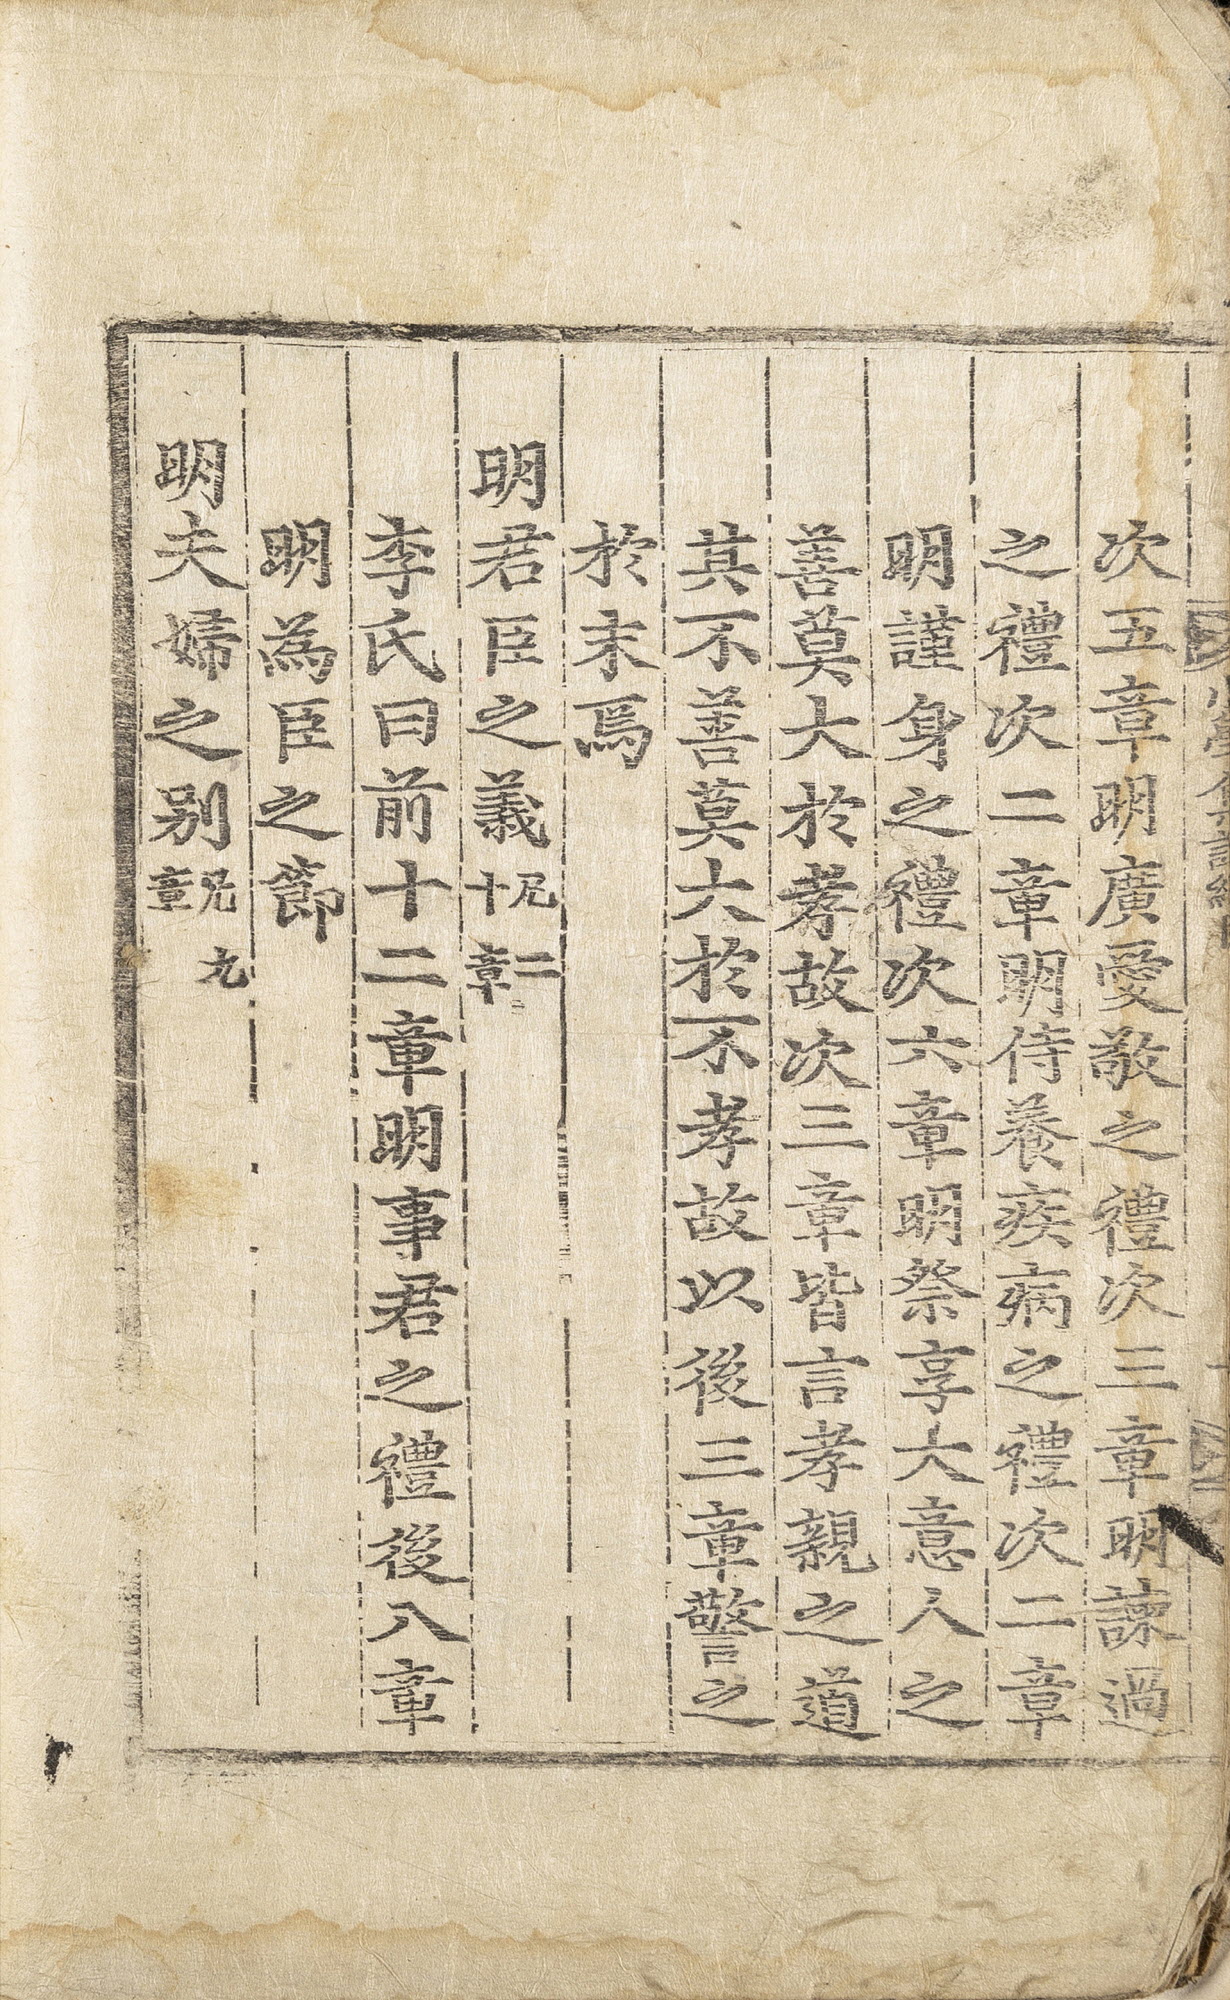 次五章明廣愛敬之禮次三章明諫過
之禮次二章明侍養疾病之禮次二章
明謹身之禮次六章明祭享大意人之
善莫大於孝故次三章皆言孝親之道
其不善莫大於不孝故以後三章警之
於末焉
明君臣之義凡二十章
李氏曰前十二章明事君之禮後八章
明為臣之節
明夫婦之別凡九章